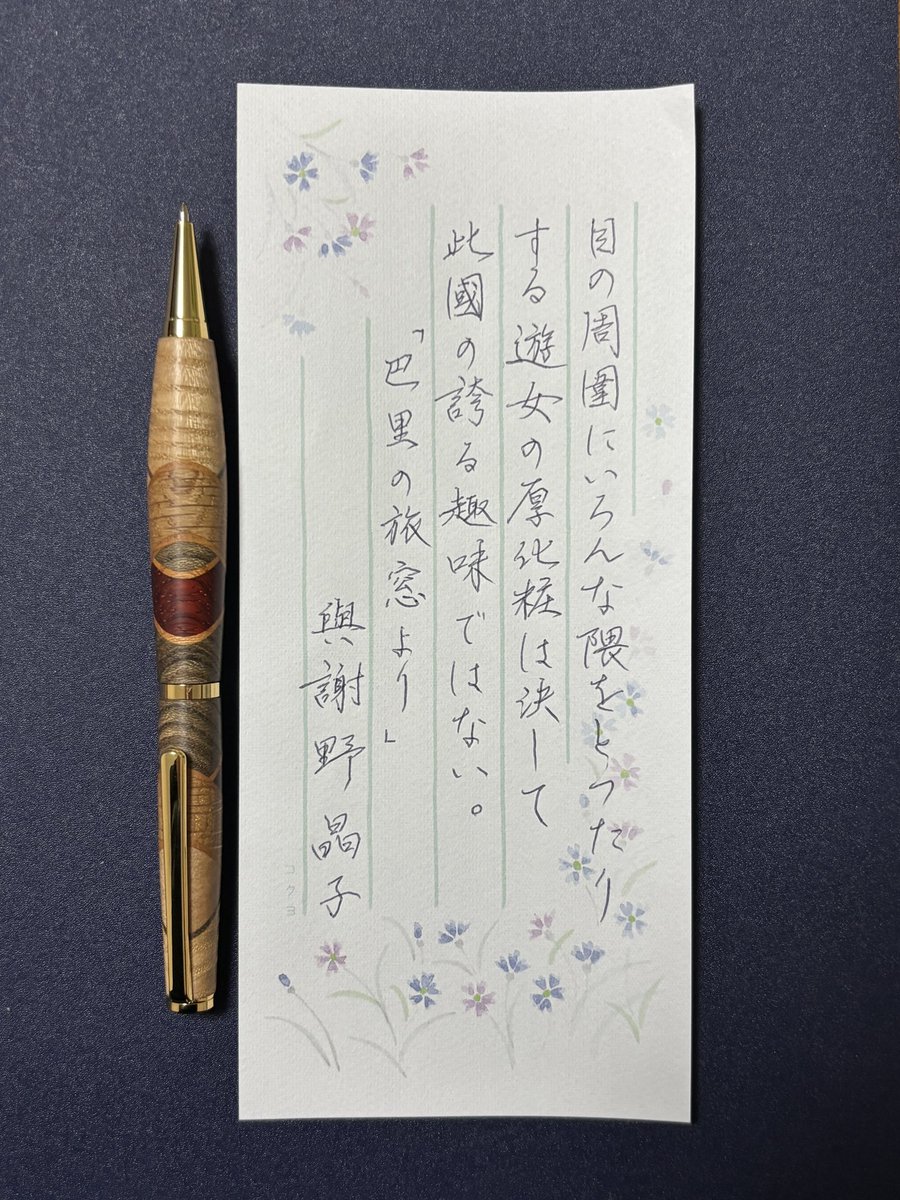 目の周圍にいろんな隈をとつたり
する遊女の厚化粧は決して
此國の誇る趣味ではない。
「巴里の旅窓より」
與謝野晶子
コクヨ